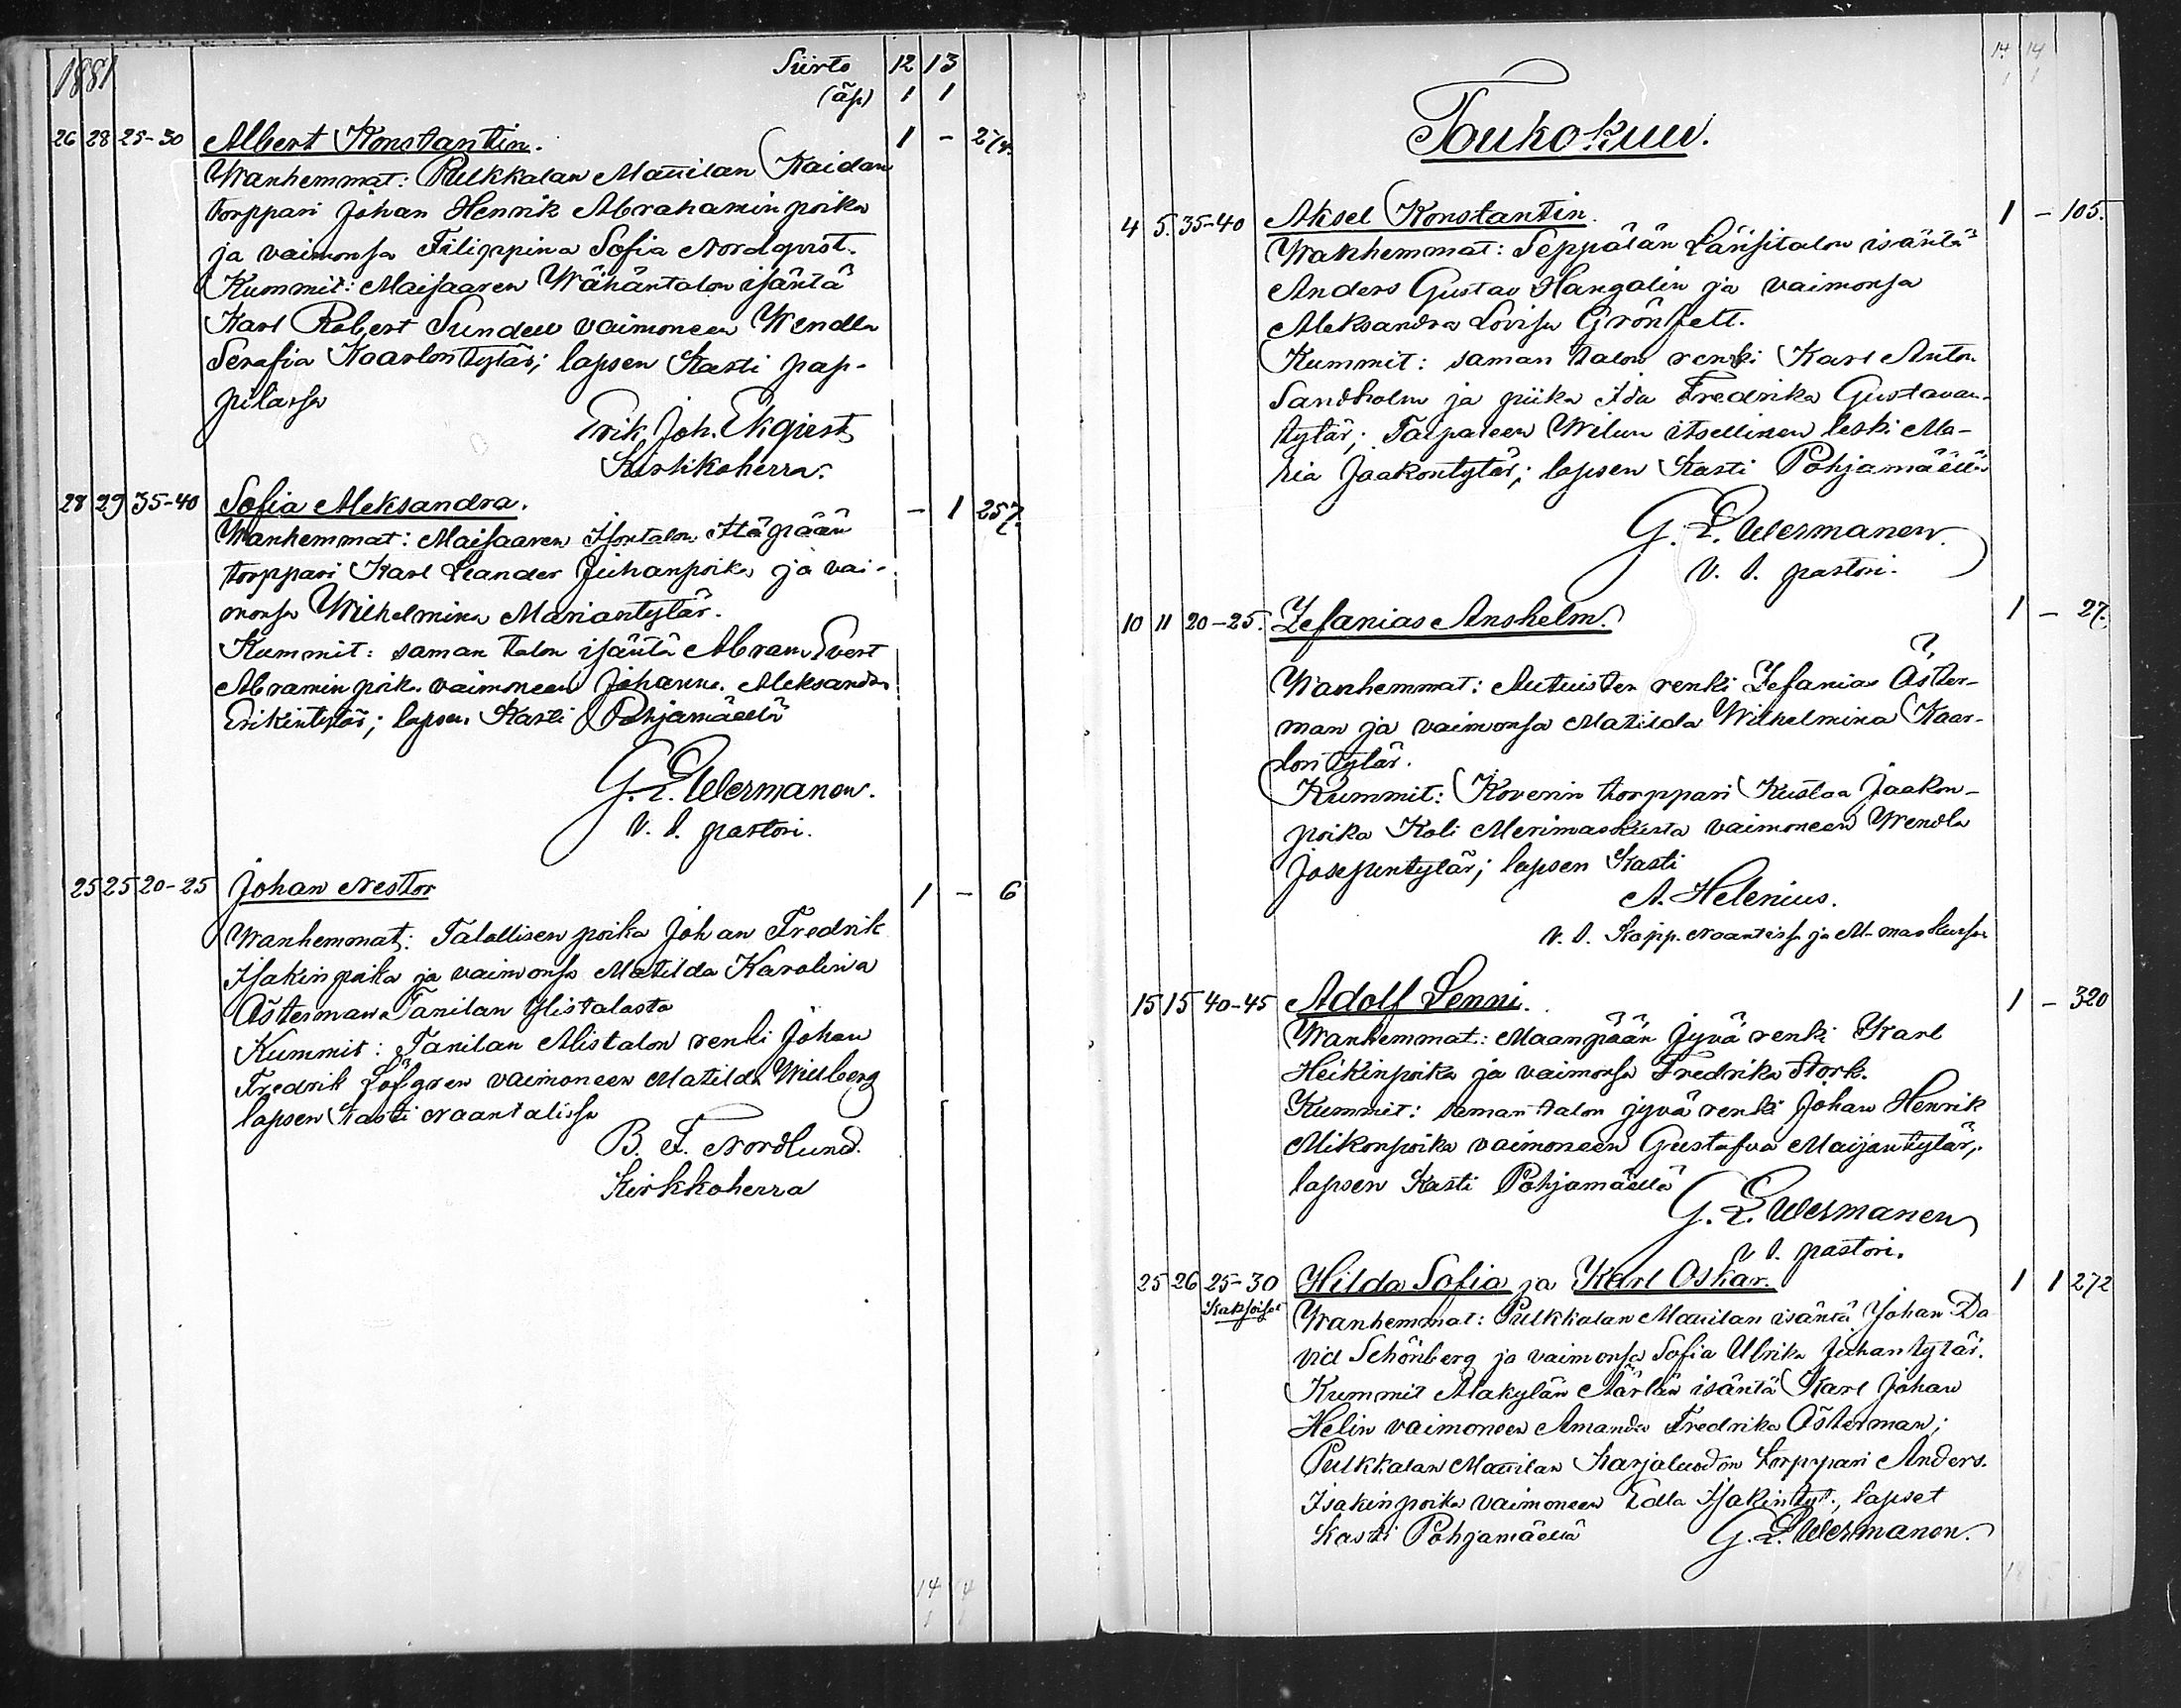 1881 Siirto 12 13
(äp) 1 1
26 28 25-30 Albert Konstantin. 1 - 274.
Wanhemmat: Pulkkalan Mattilan Kaidan
torppari Johan Henrik Abrahamin poika
ja vaimonsa Filippina Sofia Nordqvist.
Kummit: Maisaaren Wähäntalon isäntä
Karl Robert Sundell vaimoneen Wendla
Serafia Kaarlontytär; lapsen kasti pap-
pilassa
Erik Joh. Ekqvist
Kirkkoherra.
28 29 35-40 Sofia Aleksandra. - 1 257.
Wanhemmat: Maisaaren Isontalon Itäpään
torppari Karl Leander Juhanpoika ja vai-
monsa Wilhelmina Mariantytär.
Kummit: saman talon isäntä Abram Evert
Abramin poik. vaimoneen Johanna Aleksandra
Erikintytär; lapsen kasti Pohjamäellä
G. E. Wermanen.
V. t. pastori.
25 25 20-25 Johan Nestor 1 - 6
Wanhemmat: Talollisen poika Johan Fredrik
Isakinpoika ja vaimonsa Matilda Karolina
Österman Tanilan Ylistalosta
Kummit: Tanilan Alistalon renki Johan
Fredrik Löfgren vaimoneen Matilda Willberg
lapsen kasti Naantalissa
B. F. Nordlund.
Kirkkoherra
14 14
1 1
14 14
1 1
Toukokuu.
4 5. 35-40 Aksel Konstantin. 1 - 105.
Wanhemmat: Seppälän Länsitalon isäntä
Anders Gustav Hangelin ja vaimonsa
Aleksandra Lovisa Grönfelt.
Kummit: saman talon renki Karl Anton
Sandholm ja piika Ida Fredrika Gustavan-
tytär; Taipaleen Wilun itsellinen leski Ma-
ria Jaakontytär; lapsen kasti Pohjamäellä
G. E. Wermanen.
V. t. pastori.
10 11 20-25. Zefanias Anshelm. 1 - 27.
Wanhemmat: Autuisten renki Zefanias Öster-
man ja vaimonsa Matilda Wilhelmina Kaar-
lontytär.
Kummit: Koverin torppari Kustaa Jaakon-
poika Koli Merimaskusta vaimoneen Wendla
Josepuntytär; lapsen kasti
A. Helenius.
v. t. Kapp. Naantalissa ja M-maskussa
15 15 40-45 Adolf Lenni. 1 - 320
Wanhemmat: Maanpään jyvärenki Karl
Heikinpoika ja vaimonsa Fredrika Stork.
Kummit: saman talon jyvärenki Johan Henrik
Mikonpoika vaimoneen Gustafva Maijantytär;
lapsen kasti Pohjamäellä
G. E. Wermanen
v. t. pastori.
25 26 25-30 Hilda Sofia ja Karl Oskar. 1 1 272
Kaksoiset
Wanhemmat: Pulkkalan Mattilan isäntä Johan Da-
vid Schönberg ja vaimonsa Sofia Ulrika Juhantytär.
Kummit Alakylän Äärlän isäntä Karl Johan
Helin vaimoneen Amanda Fredrika Österman;
Pulkkalan Mattilan Karjaluodon torppari Anders
Isakinpoika vaimoneen Edla Isakintyt., lapset
kasti Pohjamäellä G. E. Wermanen.